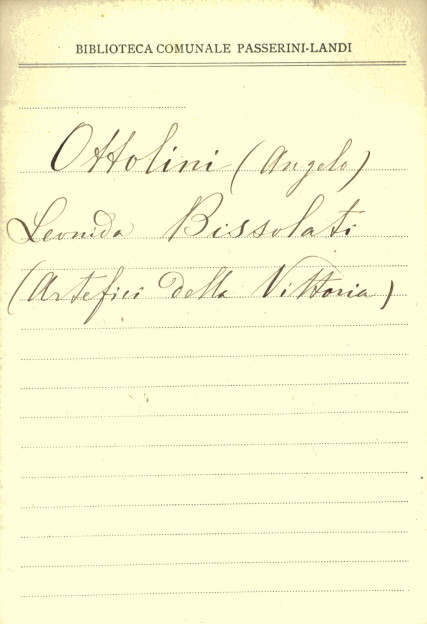 BIBLIOTECA COMUNALE PASSERINI-LANDI
Ottolini (Angelo)
Leonida Bissolati
(Artefici della Vittoria)